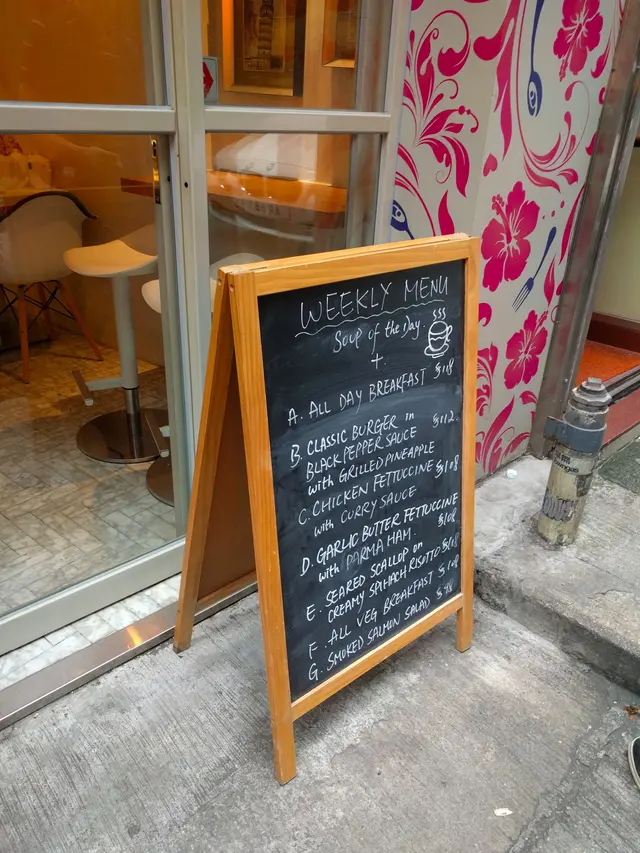 WEEKLY MENU
Soup of the Day
+
A. ALL DAY BREAKFAST $118
B. CLASSIC BURGER in $112
BLACK PEPPER SAUCE
with GRILLED PINEAPPLE
C. CHICKEN FETTUCCINE $108
with CURRY SAUCE
D. GARLIC BUTTER FETTUCCINE
with PARMA HAM. $108
E. SEARED SCALLOP on
CREAMY SPIHACH RISOTTO $118
F. ALL VEG BREAKFAST $108
G. SMOKED SALMON SALAD